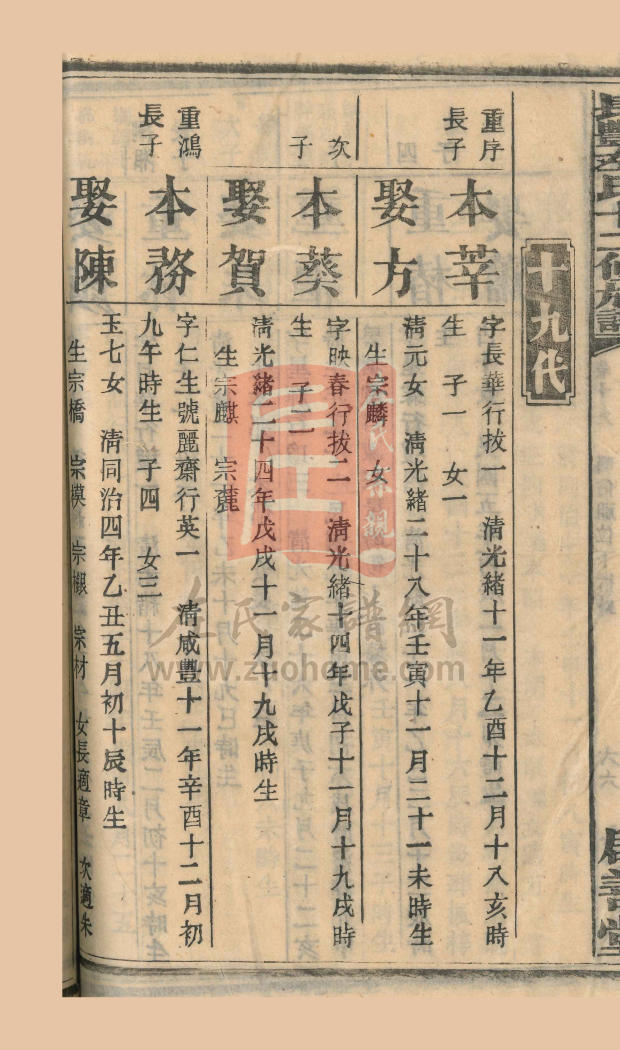 長豐左氏十二修族譜
大六
十九代
重序長子
本莘
字長華行拔一 清光緒十一年乙酉十二月十八亥時
生 子一 女一
娶方
清元女 清光緒二十八年壬寅十一月二十一未時生
生宗麟 女
次子
本葵
字映春行拔二 清光緒十四年戊子十一月十九戌時
生 子二
娶賀
清光緒二十四年戊戌十一月十九戌時生
生宗麒 宗麓
重鴻長子
本務
字仁生號麗齋行英一 清咸豐十一年辛酉十二月初
九午時生 子四 女三
娶陳
玉七女 清同治四年乙丑五月初十辰時生
生宗橋 宗模 宗棂 宗材 女長適章 次適朱
左氏家譜網
www.zuohome.com